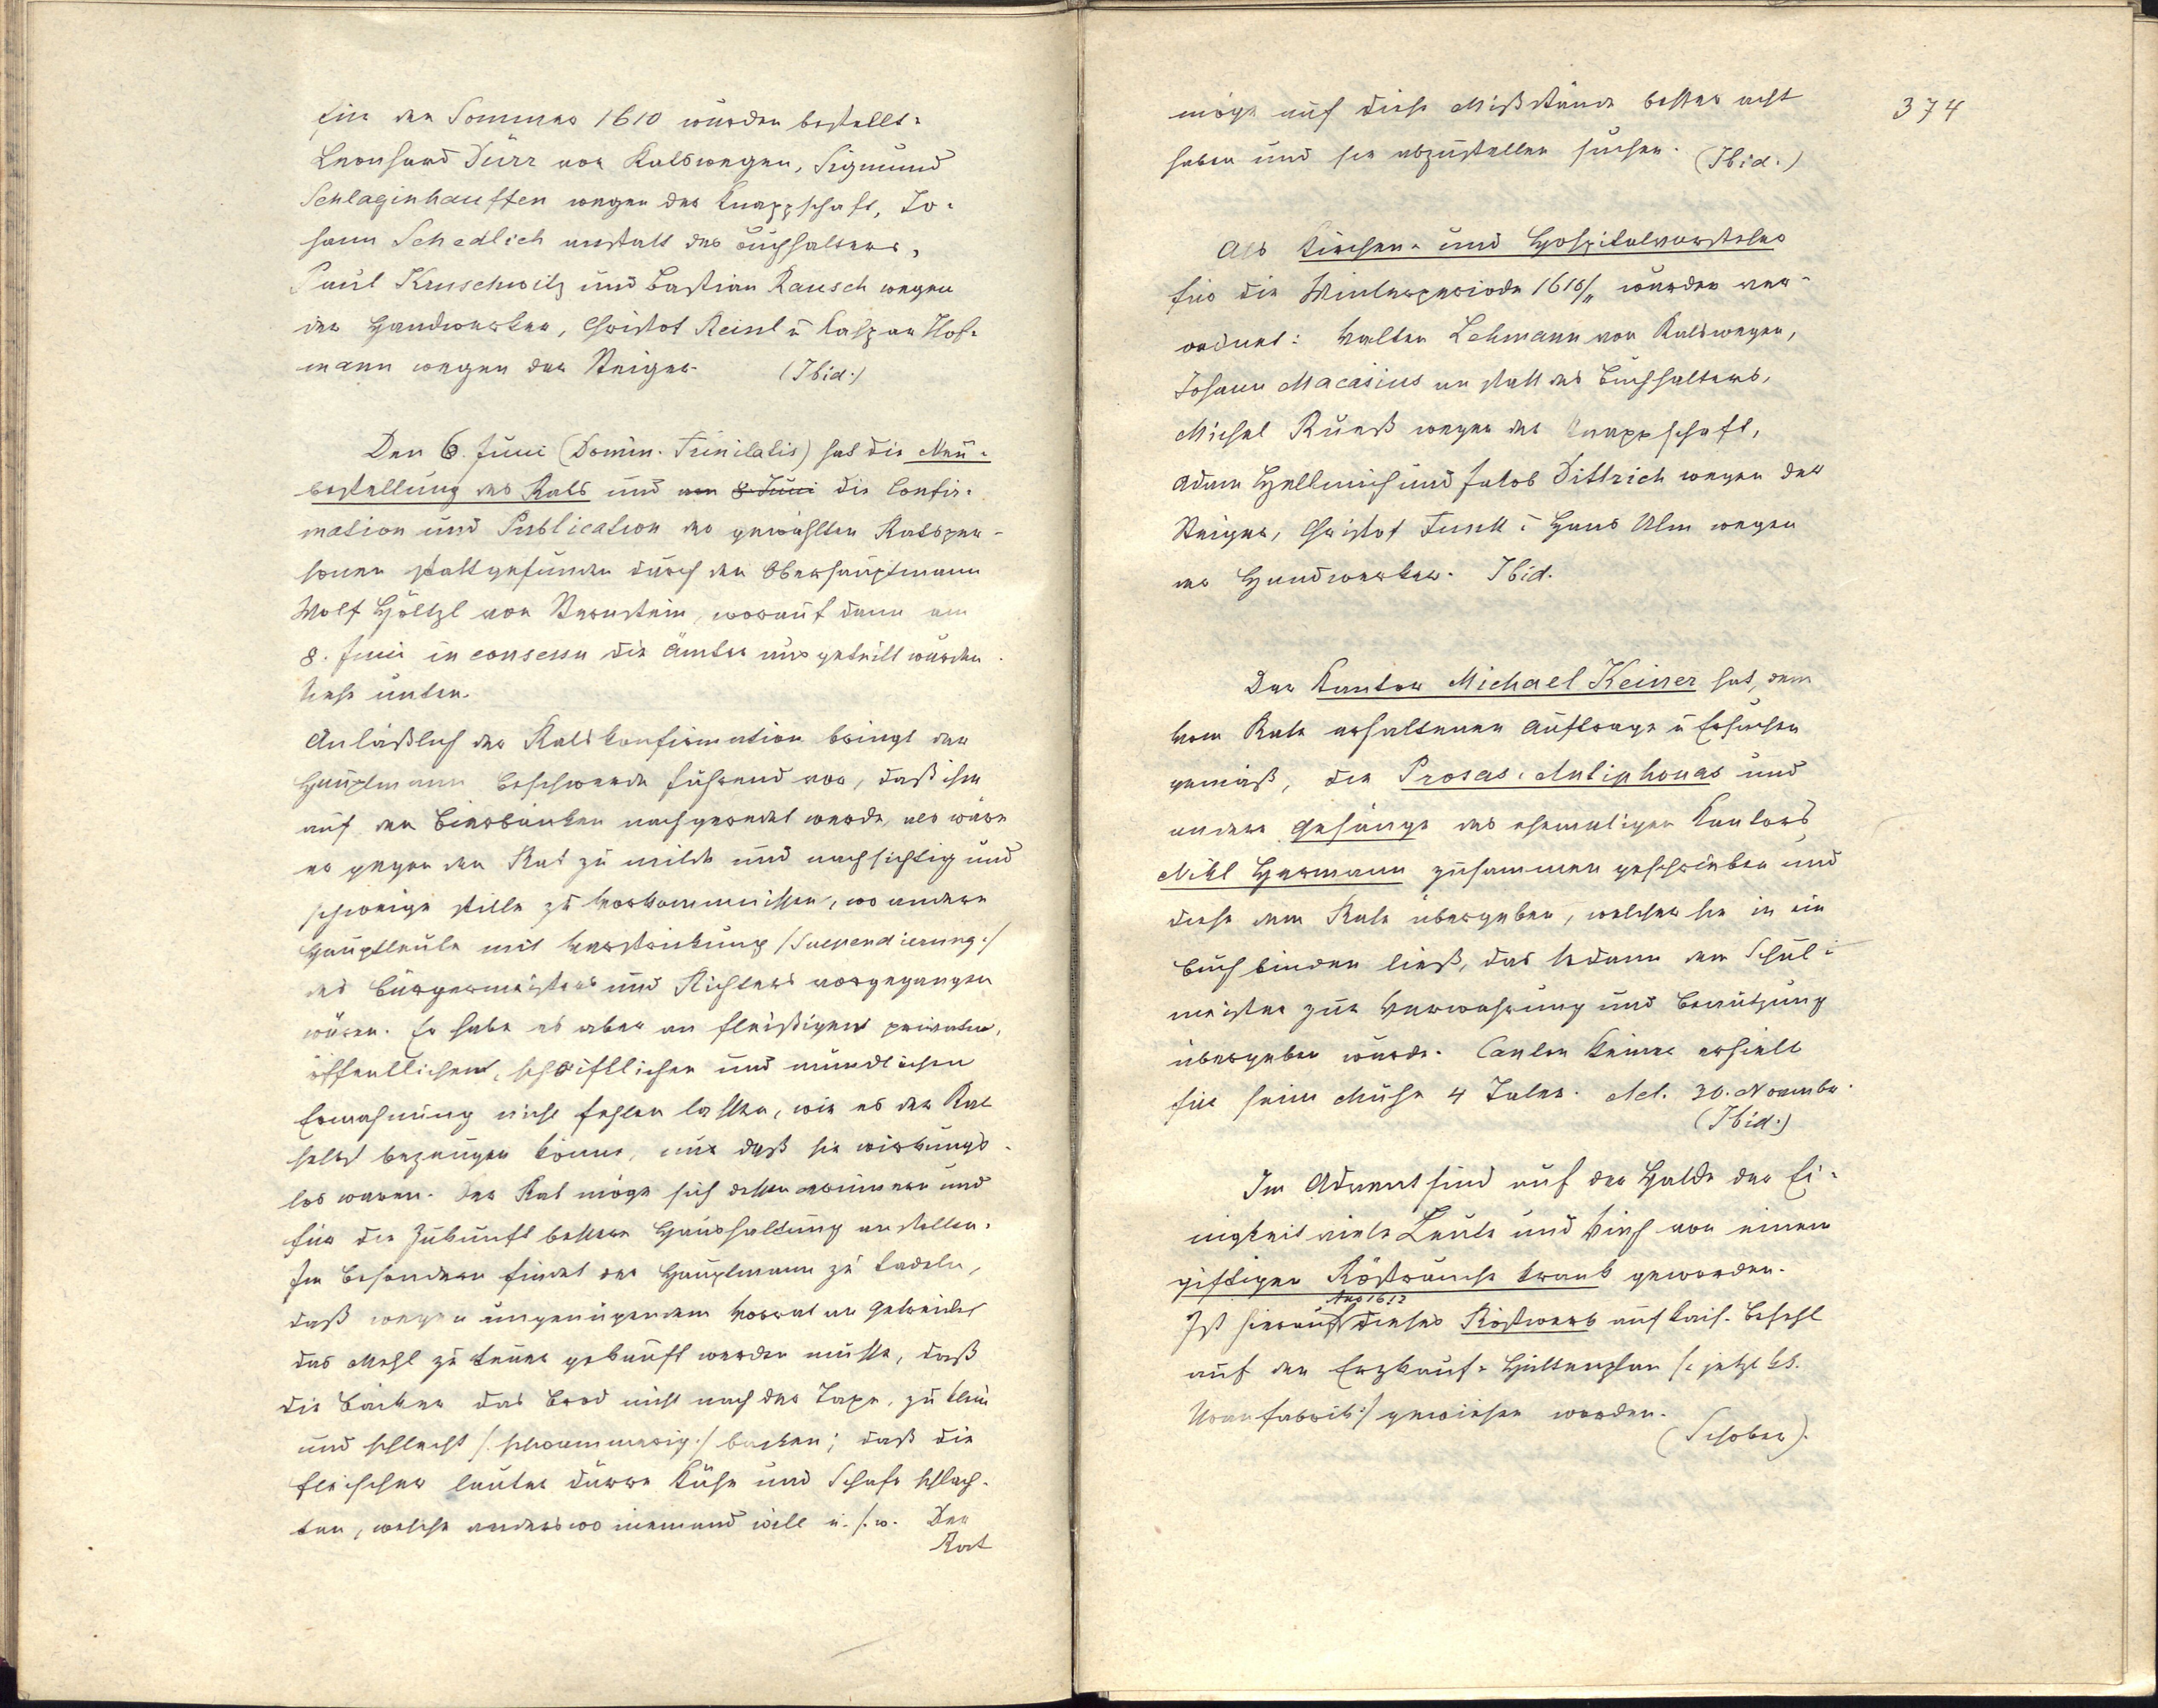 für den Sommer 1610 wurden bestellt:
Leonhard Dürr von Ratswegen, Sigmund
Schlaginhauffen wegen der Knappschaft, Jo-
hann Schedlich anstatt des Buchhalters,
Paul Kruschwitz und Bastian Rausch wegen
der Handwerker, Christof Reinl u Kaspar Hof-
mann wegen der Steiger. (Ibid.)
Den 6. Juni (Domin. Trinitatis) hat die Neu-
bestellung des Rats und am 8 Juni die Confir-
mation und Publication der gewählten Ratsper-
sonen stattgefunden durch den Oberhauptmann
Wolf Höltzl von Sternstein, worauf dann am
8. Juni in consessu die Ämter ausgeteilt wurden.
Siehe unten.
Anläßlich der Ratskonfirmation bringt der
Hauptmann beschwerde führend vor, daß ihm
auf den Bierbänken nachgeredet werde, als wäre
er gegen den Rat zu milde und nachsichtig und
schweige stille zu Vorkommnissen, wo andere
Hauptleute mit Verstrickung /Suspendierung:/
des Bürgermeisters und Richters vorgegangen
wären. Er habe es aber an fleißigen privaten,
öffentlichen, schriftlichen und mündlichen
Ermahnung nicht fehlen lassen, wie es der Rat
selbst bezeugen könne, nur daß sie wirkungs-
los waren. Der Rat möge sich dessen erinnern und
für die Zukunft bessere Haushaltung anstellen.
Im Besondern findet der Hauptmann zu tadeln,
daß wegen ungenügendem Vorrat an Getreide
das Mehl zu teuer gekauft werden müsse, daß
die Bäcker das Brod nicht nach der Taxe, zu klein
und schlecht /:schwammerig:/ backen; daß die
Fleischer lauter dürre Kühe und Schafe schlach-
ten, welche anderswo niemand will u. s. w. Der
Rat
374
möge auf diese Mißstände besser acht
haben und sie abzustellen suchen. (Ibid.)
Als Kirchen- und Hospitalvorsteher
für die Winterperiode 1610/11 wurden ver-
ordnet: Valten Lehmann von Ratswegen,
Johann Macasius an statt des Buchhalters,
Michel Rueß wegen der Knappschaft,
Adam Hellmich und Jakob Dittrich wegen der
Steiger, Christof Funk u Hans Ulm wegen
der Handwerker. Ibid.
Der Kantor Michael Keiner hat, dem
vom Rate erhaltenen Auftrage u Ersuchen
gemäß, die Prosas, Antiphonas und
andere Gesänge des ehemaligen Kantors
Nikl Hermann zusammen geschrieben und
diese dem Rate übergeben, welcher sie in ein
Buch binden ließ, das sodann dem Schul-
meister zur Verwahrung und Benützung
übergeben wurde. Cantor Keiner erhielt
für seine Mühe 4 Taler. Act. 30. Novembr.
(Ibid.)
Im Advent sind auf der Halde der Ei-
nigkeit viele Leute und Vieh von einem
giftigen Röstrauche krank geworden.
Ano 1612
Ist hierauf dieses Röstwerk auf kais. Befehl
auf den Erzkauf-Hüttenplan /: jetzt kk.
Uranfabrik:/ gewiesen worden.
(Schober).